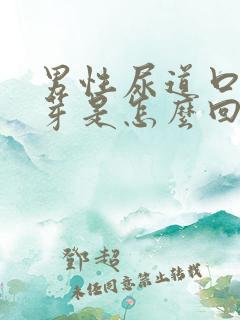 男性尿道口
芽是怎麼回
鄧超
未經同意禁止轉載